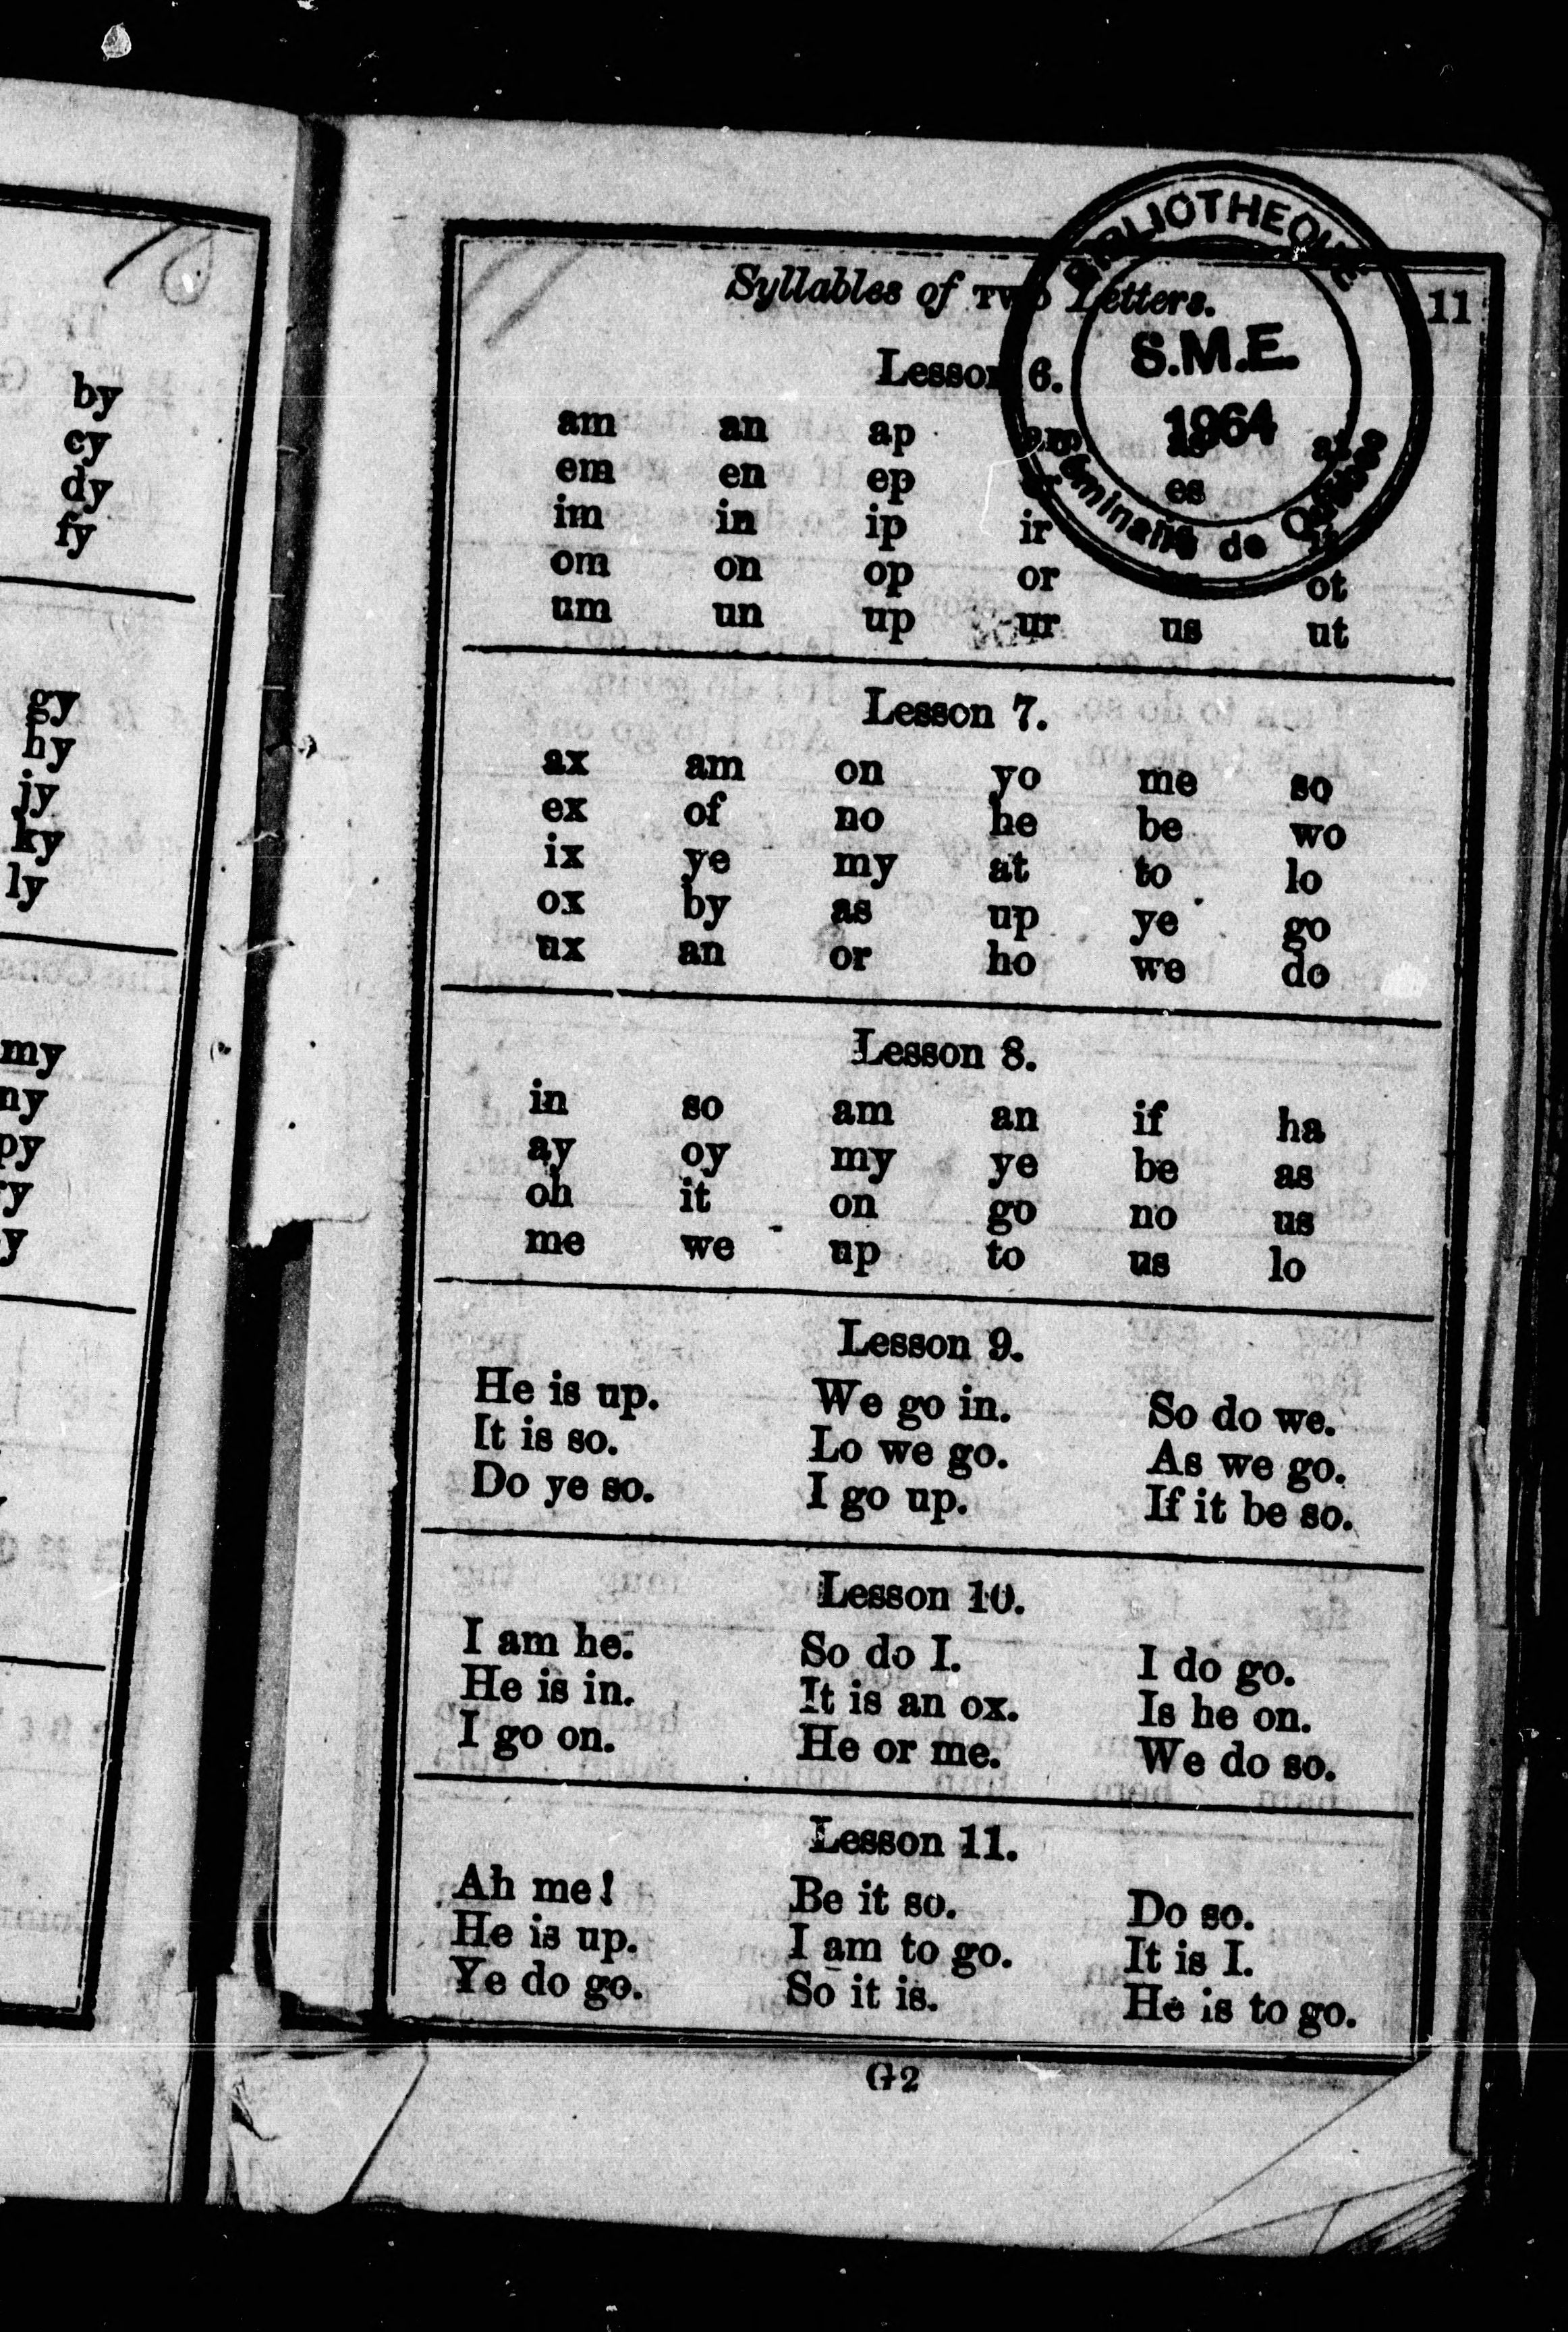 by
cy
dy
fy
gy
hy
jy
ky
ly
my
ny
py
y
y
Syllables of TWO Letters. 11
BIBLIOTHEQUE
S.M.E.
1964
de Québec
Lesson 6.
am an ap ar as at
em en ep er es
im in ip ir it
om on op or ot
um un up ur us ut
Lesson 7.
ax am on yo me so
ex of no he be wo
ix ye my at to lo
ox by as up ye go
ux an or ho we do
Lesson 8.
in so am an if ha
ay oy my ye be as
oh it on go no us
me we up to us lo
Lesson 9.
He is up. We go in. So do we.
It is so. Lo we go. As we go.
Do ye so. I go up. If it be so.
Lesson 10.
I am he. So do I. I do go.
He is in. It is an ox. Is he on.
I go on. He or me. We do so.
Lesson 11.
Ah me! Be it so. Do so.
He is up. I am to go. It is I.
Ye do go. So it is. He is to go.
G 2